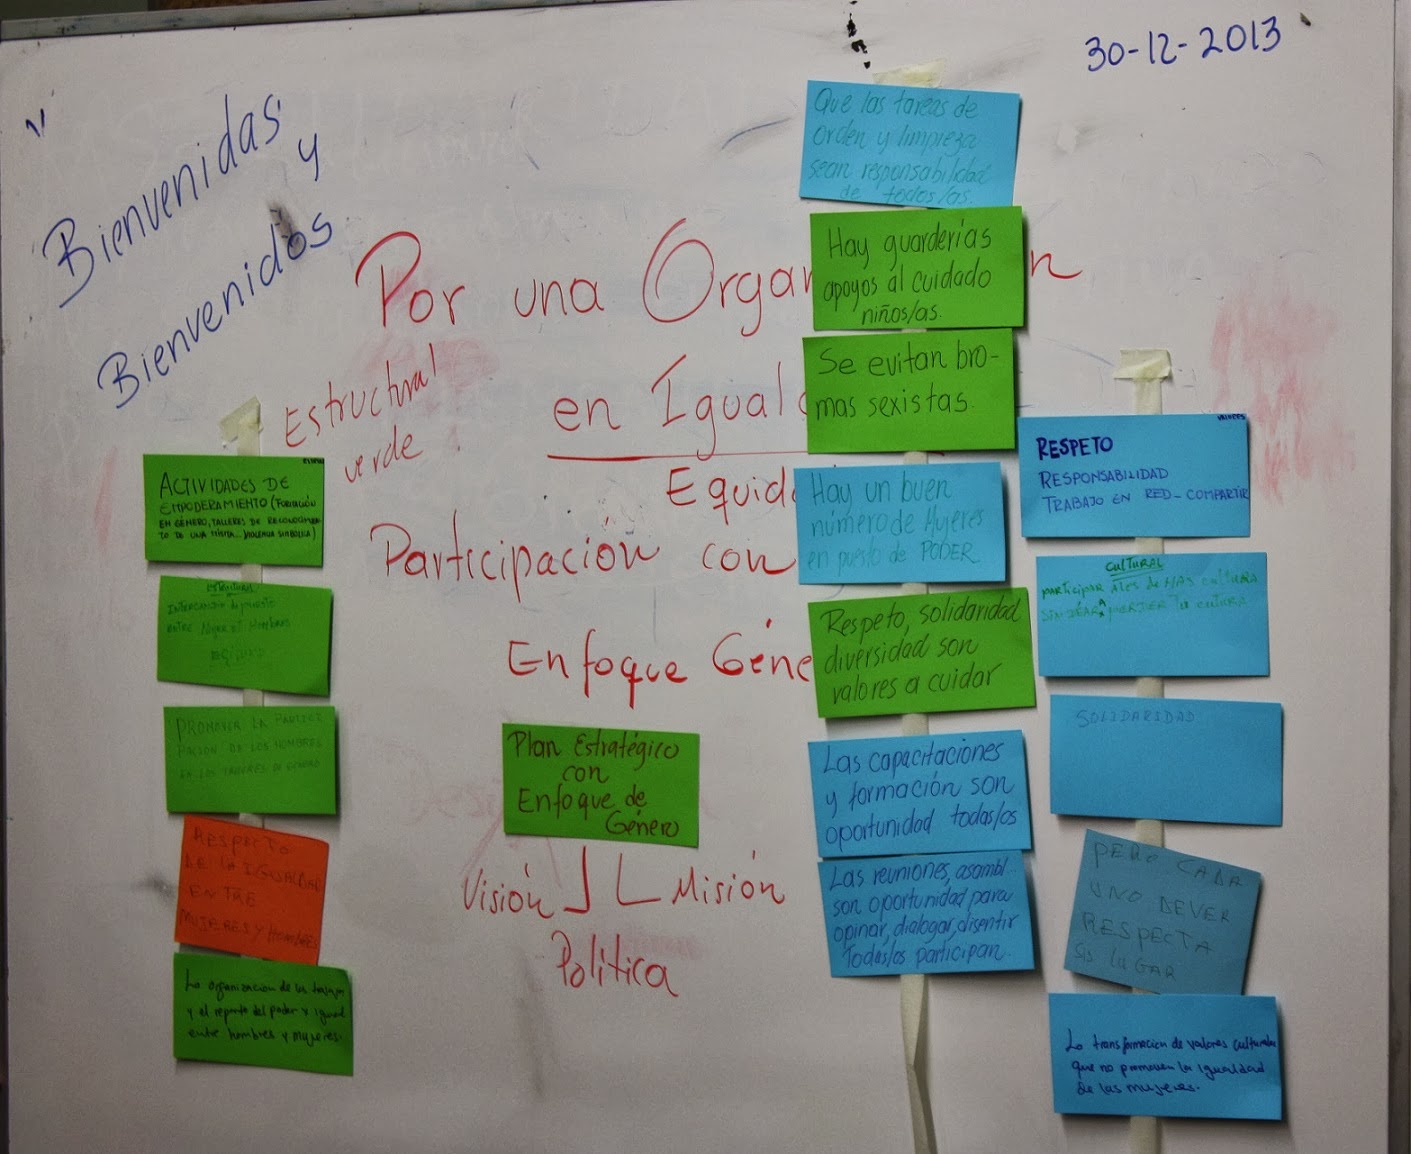 30-12-2013
Bienvenidas y
Bienvenidos
Por una Organ n
en Iguald
Equida
Participación con
Enfoque Géne
Estructural
verde
ACTIVIDADES DE
EMPODERAMIENTO (FORMACIÓN
EN GÉNERO, TALLERES DE
DE UNA MISMA... VIOLENCIA SIMBÓLICA)
ESTRUTURAL
ENTRE HOMBRES
PROMOVER LA PARTICI
PACION DE LOS HOMBRES
EN LOS TALLERES DE GENERO
RESPECTO
DE LA IGUALDAD
ENTRE
MUJERES Y HOMBRES
La organizacion de los trabajos
y el reparto del poder x igual
entre hombres y mujeres.
Plan Estratégico
con
Enfoque de
Género
Visión Misión
Política
Que las tareas de
orden y limpieza
sean responsabilidad
de todos/as.
Hay guarderías
apoyos al cuidado
niños/as.
Se evitan bro-
mas sexistas.
Hay un buen
número de Mujeres
en puesto de PODER
Respeto, solidaridad
diversidad son
valores a cuidar
Las capacitaciones
y formación son
oportunidad todas/os
Las reuniones, asambl...
son oportunidad para
opinar, dialogar, disentir
Todas/os participan.
VALORES
RESPETO
RESPONSABILIDAD
TRABAJO EN RED - COMPARTIR
CULTURAL
PARTICIPAR MAS CULTURA
SIN DEJAR A PERDER TU CUTURA
SOLIDARIDAD
PERO CADA
UNO DEVER
RESPECTA
SIS LUGAR
La transformacion de valores culturales
que no promueven la igualdad
de las mujeres.